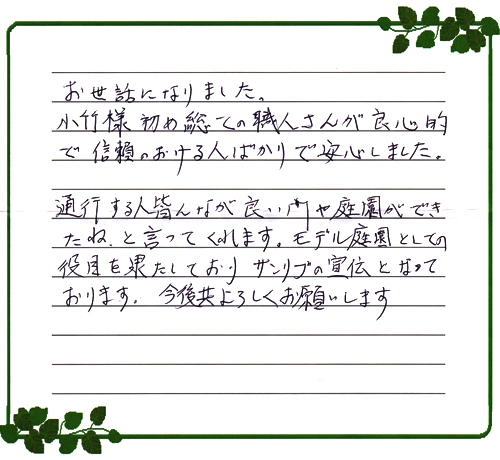 お世話になりました。
小竹様初め総ての職人さんが良心的
で信頼のおける人ばかりで安心しました。
通行する人皆んなが良い門や庭園ができ
たねと言ってくれます。モデル庭園としての
役目を果たしており サンリブの宣伝となって
おります。今後共よろしくお願いします